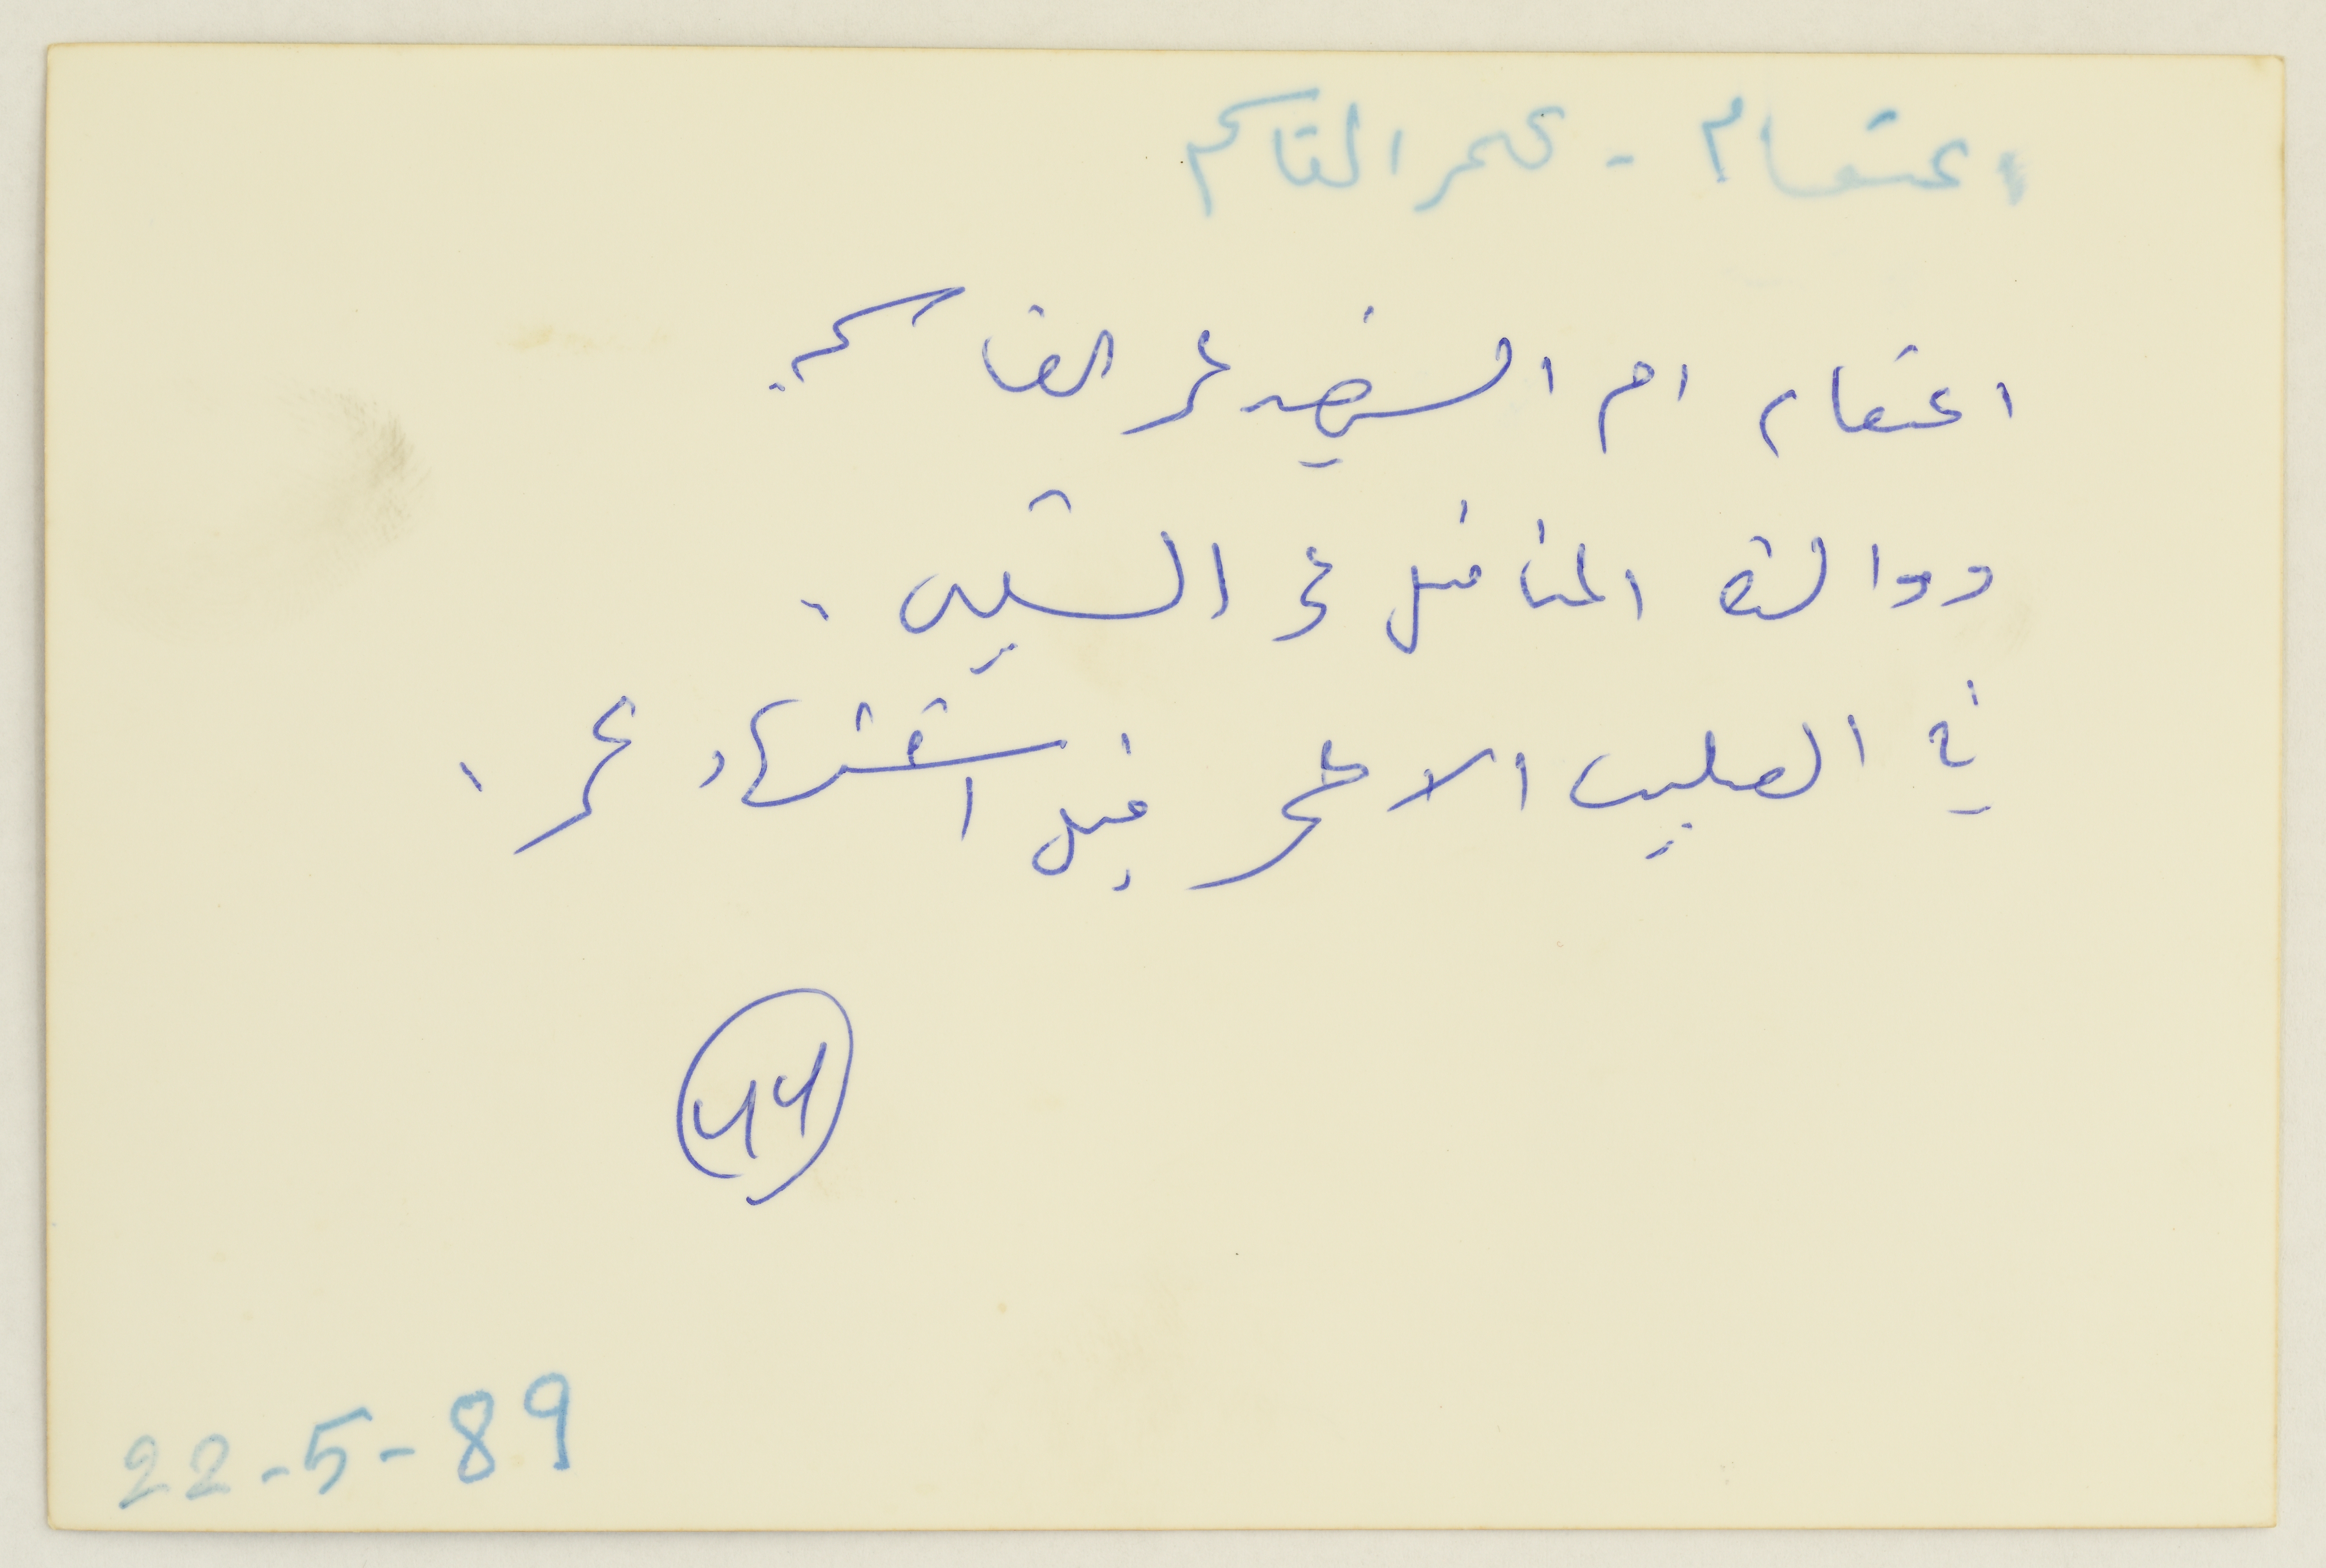 اعتصام - عمر القاسم
اعتصام ام الشهيد عمر القاسم
ووالدة المناضل
في الصليب الاحمر قبل استشهاد عمر .
44
22-5-89